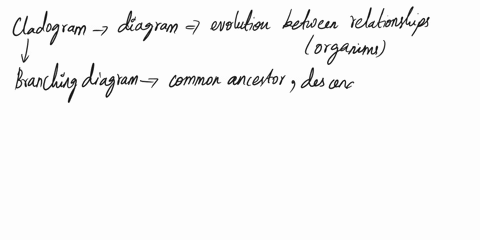 Cladogram → diagram ⇒ evolution between relationships
(organims)
↓
Branching diagram → common ancestor, descenc